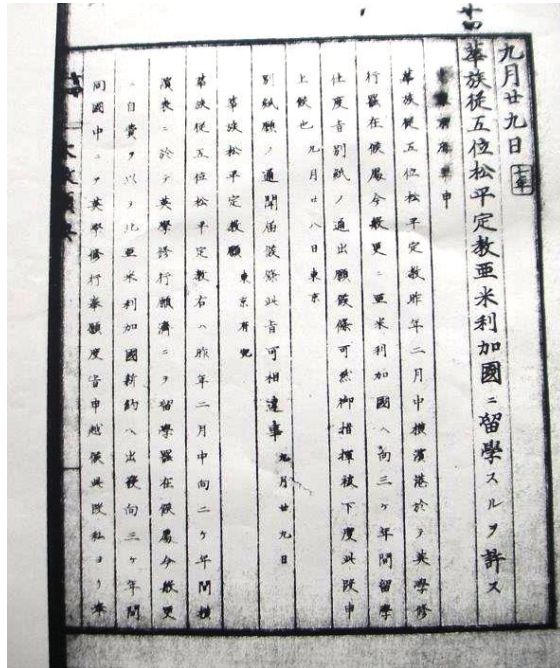 九月廿九日 七年
華族從五位松平定教亜米利加國ニ留學スルヲ許ス
申
華族從五位松平定教昨年二月中横濱港於テ英學修
行罷在候處今般更ニ亜米利加國ヘ向三ヶ年間留學
仕度旨別紙ノ通出願候條可然御指揮被下度此段申
上候也 九月廿八日東京
別紙願ノ通聞届候條此旨可相達事 九月廿九日
華族松平定教願 東京府宛
華族從五位松平定教右ハ昨年二月中向二ヶ年間横
濱表ニ於テ英學修行願濟ニテ留學罷在候處今般更
ニ自費ヲ以テ北亜米利加國新約ヘ出後向三ヶ年間
同國中ニテ英學修行奉願度旨申越候此段私ヨリ奉